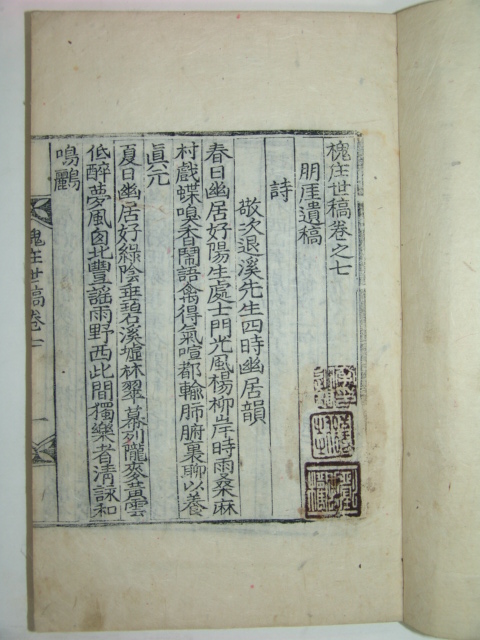 槐庄世稿卷之七
明厓遺稿
詩
敬次退溪先生四時幽居韻
春日幽居好陽生處士門光風楊柳岸時雨桑麻
村戲蝶嗅香鬧語禽得氣喧都輸肺腑裏聊以養
眞元
夏日幽居好綠陰垂碧溪墟林翠幕列隴麥黃雲
低醉夢風囱北豐謠雨野西此間獨樂者淸詠和
鳴鸝
槐庄世稿卷